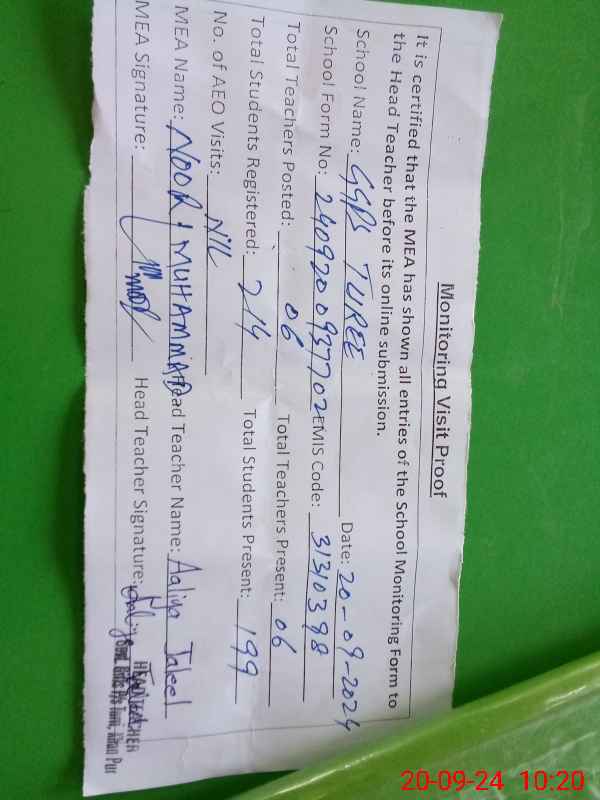 Monitoring Visit Proof
It is certified that the MEA has shown all entries of the School Monitoring Form to
the Head Teacher before its online submission.
School Name: GGPS TUREE Date: 20-09-2024
School Form No: 2409200937702 EMIS Code: 31310398
Total Teachers Posted: 06 Total Teachers Present: 06
Total Students Registered: 214 Total Students Present: 199
No. of AEO Visits: NIL
MEA Name: NOOR MUHAMMAD Head Teacher Name: Aaliya Jaleel
MEA Signature: Head Teacher Signature:
HEAD TEACHER
Govt. Girls P/s Turri, Khan Pur
20-09-24 10:20